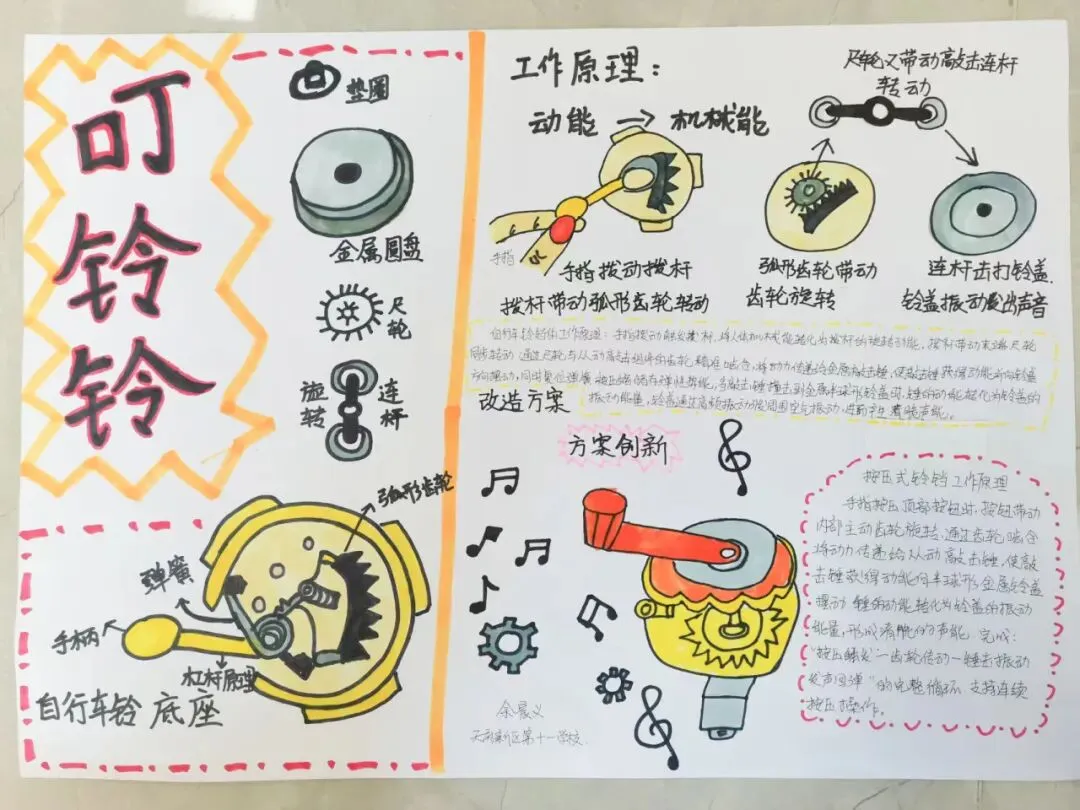 叮
铃
铃
垫圈
金属圆盘
尺
轮
旋
转
连
杆
弧形齿轮
弹簧
手柄
杠杆原理
自行车铃 底座
工作原理：
动能 → 机械能
手指
手指拨动拨杆
拨杆带动弧形齿轮转动
弧形齿轮带动
齿轮旋转
尺轮又带动敲击连杆
转动
连杆击打铃盖.
铃盖振动发出声音
自行车铃铛的工作原理：手指拨动触发拨杆，将人体机械能转化为拨杆的旋转动能，拨杆带动末端尺轮
同步转动
改造方案
方案创新
按压式铃铛工作原理
手指按压顶部按钮时，按钮带动
内部主动齿轮旋转，通过齿轮啮合
将动力传递给从动敲击锤，使敲
击锤获得动能向半球形金属铃盖
撞动 锤的动能转化为铃盖的振动
能量，形成清脆的声能，完成：
“按压触发”一齿轮传动一锤击振动
发声回弹”的完整循环 支持连续
按压操作。